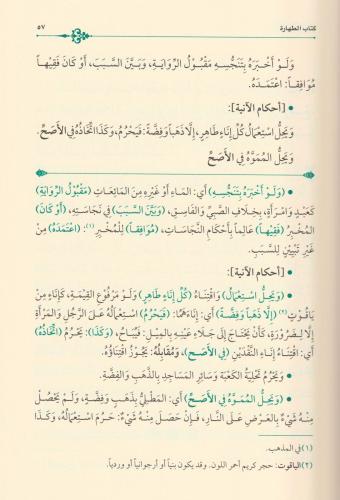 كتاب الطهارة ٥٧
وَلَوْ أَخْبَرَهُ بِتَنَجُّسِهِ مَقْبُولُ الرِّوَايَةِ، وَبَيَّنَ السَّبَبَ، أَوْ كَانَ فَقِيهاً
مُوَافِقاً: اعْتَمَدَهُ.
• [أحكام الآنية]:
وَيَحِلُّ اسْتِعْمَالُ كُلِّ إِنَاءٍ طَاهِرٍ، إِلَّا ذَهَباً وَفِضَّةً: فَيَحْرُمُ، وَكَذَا اتِّخَاذُهُ فِي الْأَصَحِّ.
وَيَحِلُّ الْمُمَوَّهُ فِي الْأَصَحِّ
• (وَلَوْ أَخْبَرَهُ بِتَنَجُّسِهِ) أي: الماءِ أَوْ غَيْرِهِ مِنَ المائِعَاتِ (مَقْبُولُ الرِّوَايَةِ)
كَعَبْدٍ وَامْرَأَةٍ، بِخِلَافِ الصَّبِيِّ وَالفَاسِقِ، (وَبَيَّنَ السَّبَبَ) فِي نَجَاسَتِهِ، (أَوْ كَانَ)
المُخْبِرُ (فَقِيهاً) عَالِماً بِأَحْكَامِ النَّجَاسَاتِ، (مُوَافِقاً) لِلْمُخْبَرِ (١): (اعْتَمَدَهُ) مِنْ
غَيْرِ تَبْيِينٍ لِلسَّبَبِ.
• [أحكام الآنية]:
• (وَيَحِلُّ اسْتِعْمَالُ) وَاقْتِنَاءُ (كُلِّ إِنَاءٍ طَاهِرٍ) وَلَوْ مَرْفُوعَ القِيمَةِ، كَإِنَاءٍ مِنْ
يَاقُوتٍ (٢) (إِلَّا ذَهَباً وَفِضَّةً) أَيْ: إِنَاءَهُمَا: (فَيَحْرُمُ) اسْتِعْمَالُهُ عَلَى الرَّجُلِ وَالمَرْأَةِ
إِلَّا لِضَرُورَةٍ، كَأَنْ يَحْتَاجَ إِلَى جَلَاءِ عَيْنِهِ بِالمِيلِ: فَيُبَاحُ، (وَكَذَا): يَحْرُمُ (اتِّخَاذُهُ)
أي: اقْتِنَاءُ إِنَاءِ النَّقْدَيْنِ (فِي الأَصَحِّ)، وَمُقَابِلُهُ: يَجُوزُ اقْتِنَاؤُهُ.
• وَيَحْرُمُ تَحْلِيَةُ الكَعْبَةِ وَسَائِرِ المَسَاجِدِ بِالذَّهَبِ وَالفِضَّةِ.
• (وَيَحِلُّ المُمَوَّهُ فِي الأَصَحِّ) أي: المَطْلِيُّ بِذَهَبٍ وَفِضَّةٍ، وَلَمْ يَحْصُلْ
مِنْهُ شَيْءٌ بِالعَرْضِ عَلَى النَّارِ، فَإِنْ حَصَلَ مِنْهُ شَيْءٌ: حَرُمَ اسْتِعْمَالُهُ، وَكَذَا
(١) في المذهب.
(٢) الياقوت: حجر كريم أحمر اللون. وقد يكون بنياً أو أرجوانياً أو وردياً.